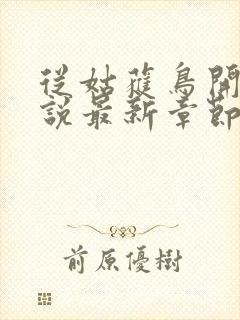 從姑蘿鳥開
說最新章節
前原優樹